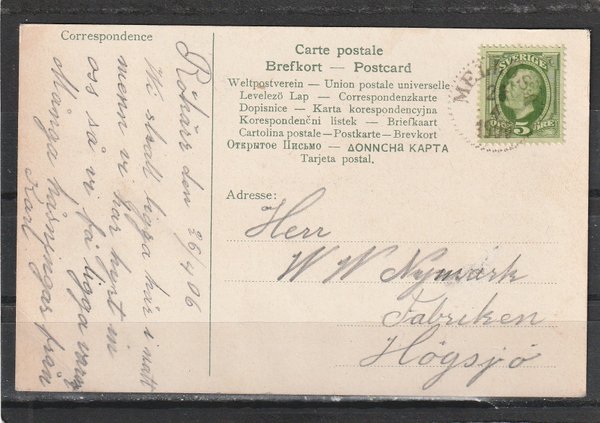 Correspondence
Röhärs den 26/4 06
Wi skall ligga här i natt
menn vi har hyrt in
oss så vi få ligga varm
Många häsningar från
Karl
Carte postale
Brefkort — Postcard
Weltpostverein — Union postale universelle
Levelező Lap — Correspondenzkarte
Dopisnice — Karta korespondencyjna
Korespondenční listek — Briefkaart
Cartolina postale — Postkarte — Brevkort
Открытое Письмо — ΔΟΝΝСНА КАРТА
Tarjeta postal.
SVERIGE
5 ÖRE
Adresse:
Herr
W W Nymark
Fabriken
Högsjö